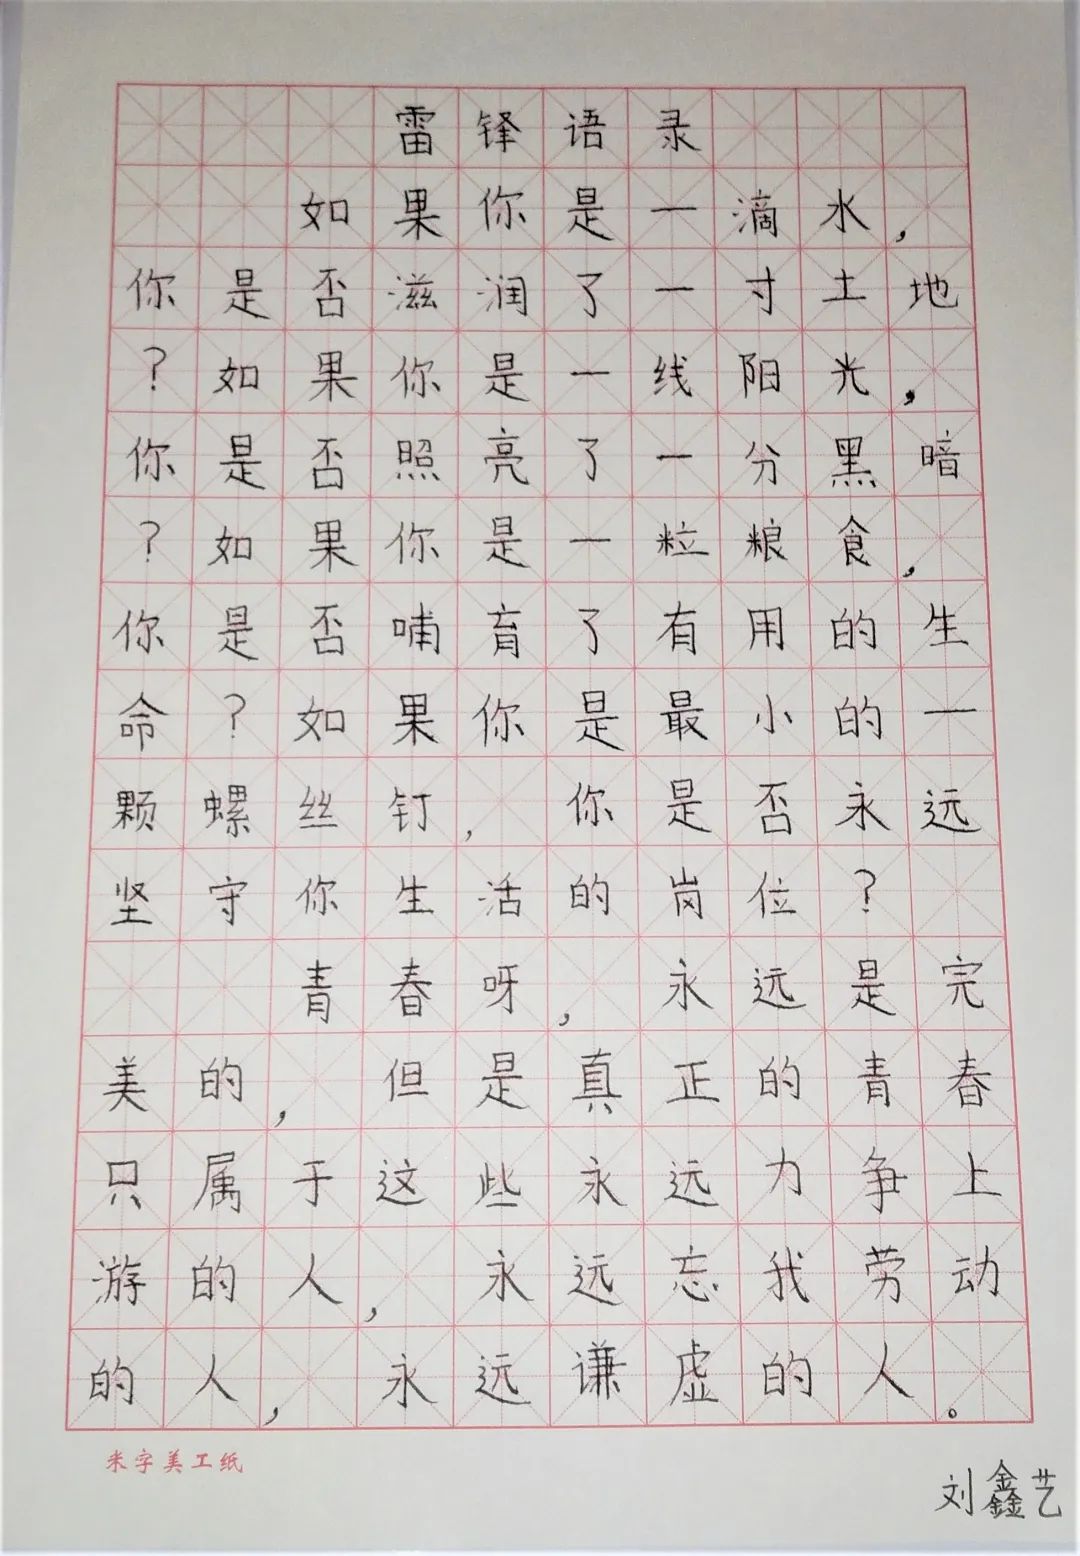 雷锋语录
如果你是一滴水，
你是否滋润了一寸土地
？如果你是一线阳光，
你是否照亮了一分黑暗
？如果你是一粒粮食，
你是否哺育了有用的生
命？如果你是最小的一
颗螺丝钉，你是否永远
坚守你生活的岗位？
青春呀，永远是完
美的，但是真正的青春
只属于这些永远力争上
游的人，永远忘我劳动
的人，永远谦虚的人。
米字美工纸
刘鑫艺